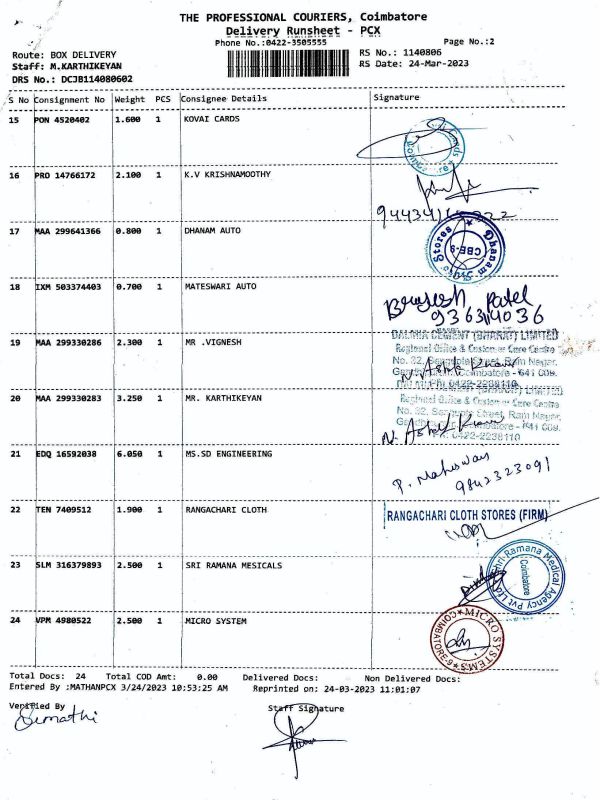 THE PROFESSIONAL COURIERS, Coimbatore
Delivery Runsheet - PCX
Phone No.:0422-3505555 Page No.:2
Route: BOX DELIVERY RS No.: 1140806
Staff: M.KARTHIKEYAN RS Date: 24-Mar-2023
DRS No.: DCJB114080602
S No Consignment No Weight PCS Consignee Details Signature
15 PON 4520402 1.600 1 KOVAI CARDS
16 PRO 14766172 2.100 1 K.V KRISHNAMOOTHY
17 MAA 299641366 0.800 1 DHANAM AUTO
Dhanam Stores CBE-9
18 IXM 503374403 0.700 1 MATESWARI AUTO
Brajesh Patel
19 MAA 299330286 2.300 1 MR .VIGNESH
DALMIA CEMENT (BHARAT) LIMITED
Regional Office & Customer Care Centre
N. Ashok Kumar
20 MAA 299330283 3.250 1 MR. KARTHIKEYAN
Regional Office & Customer Care Centre
No. 32, Street, Ram Nagar,
Coimbatore - 641 009.
N. Ashok Kumar
Ph: 0422-2238110
21 EDQ 16592038 6.050 1 MS.SD ENGINEERING
P. Maheswari
9842323091
22 TEN 7409512 1.900 1 RANGACHARI CLOTH
RANGACHARI CLOTH STORES (FIRM)
23 SLM 316379893 2.500 1 SRI RAMANA MESICALS
Shri Ramana Medical Agency Pvt Ltd Coimbatore
24 VPM 4980522 2.500 1 MICRO SYSTEM
MICRO SYSTEMS COIMBATORE-9
Total Docs: 24 Total COD Amt: 0.00 Delivered Docs: Non Delivered Docs:
Entered By :MATHANPCX 3/24/2023 10:53:25 AM Reprinted on: 24-03-2023 11:01:07
Verified By Staff Signature
Sumathi